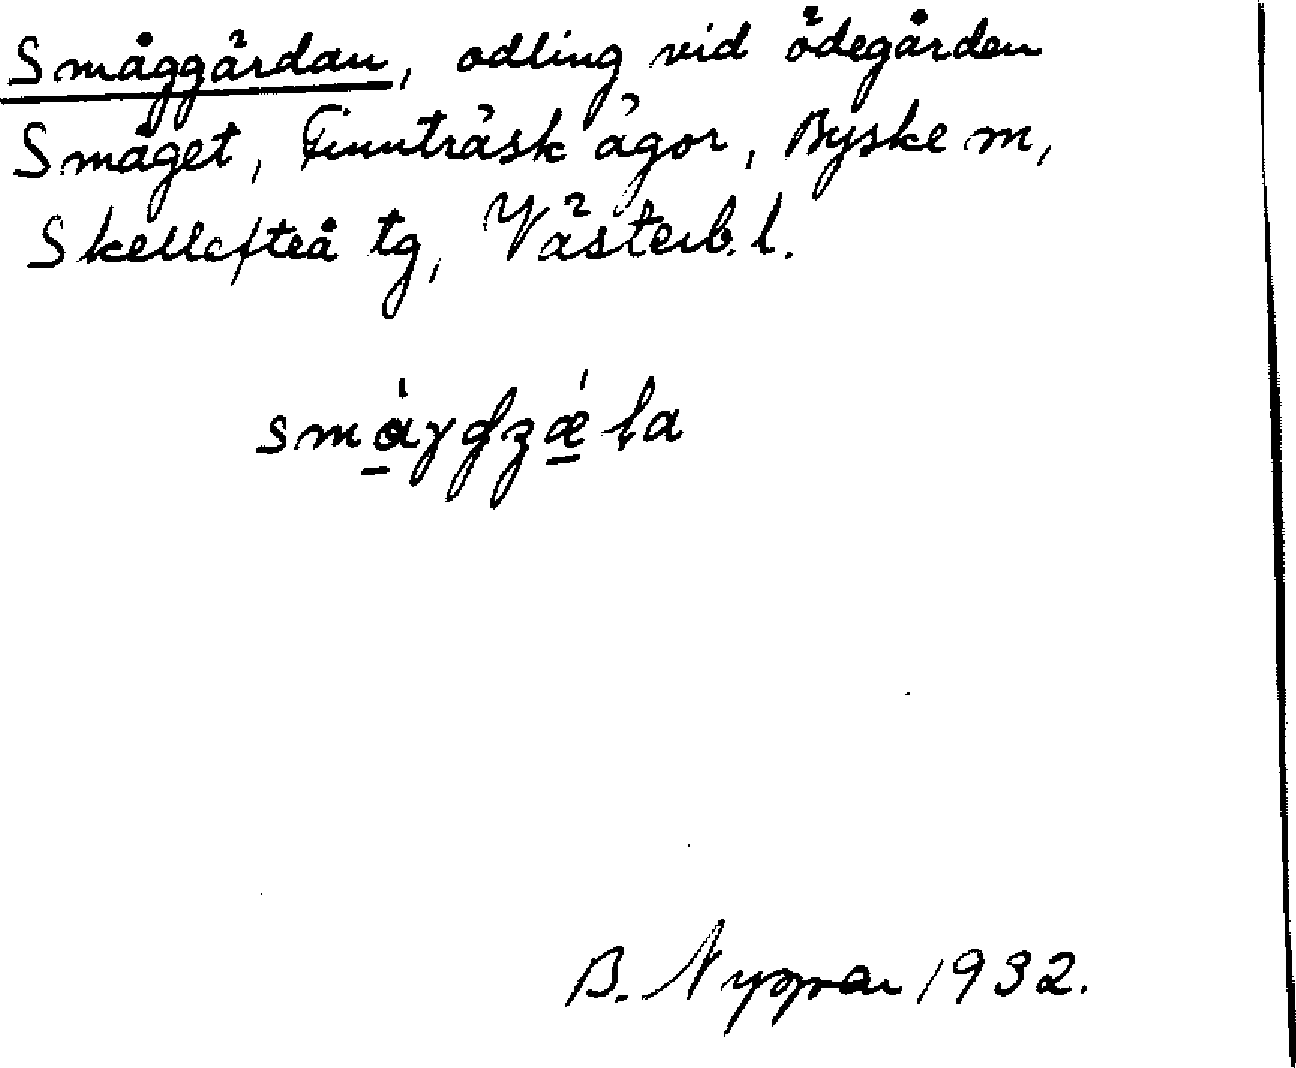 Småggärdan, odling vid ödegården
Småget, Finnträsk ägor, Byske m,
Skellefteå tg, Västerb. l.
B. Nyman 1932.